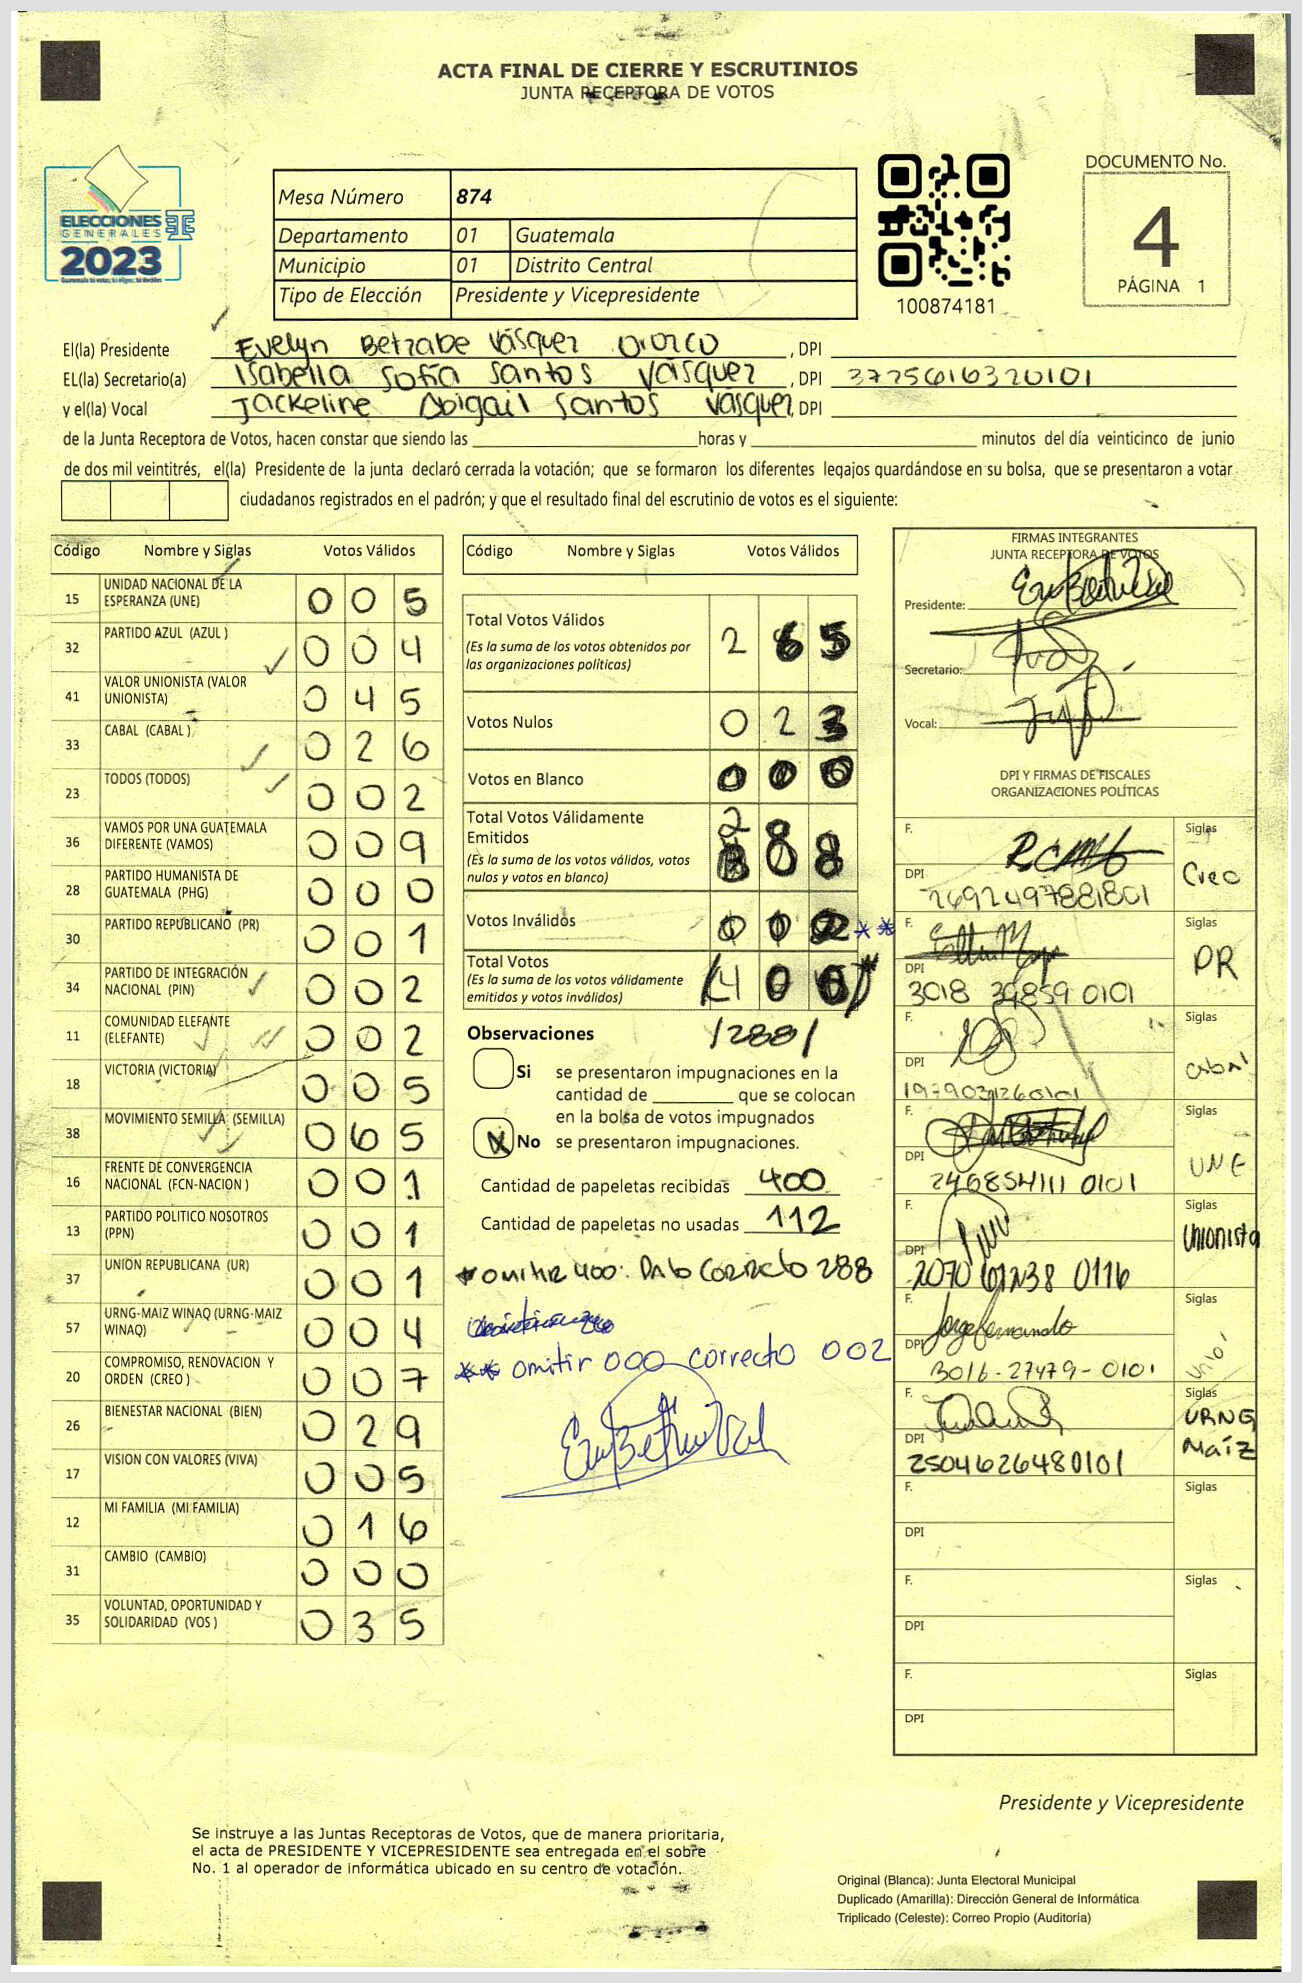 ACTA FINAL DE CIERRE Y ESCRUTINIOS
JUNTA RECEPTORA DE VOTOS
ELECCIONES
GENERALES
2023
Mesa Número 874
Departamento 01 Guatemala
Municipio 01 Distrito Central
Tipo de Elección Presidente y Vicepresidente
100874181
DOCUMENTO No.
4
PÁGINA 1
El(la) Presidente Evelyn Betzabe Vásquez Orozco, DPI
EL(la) Secretario(a) Isabella Sofia Santos Vásquez, DPI 3725616320101
y el(la) Vocal Jackeline Abigail Santos Vásquez, DPI
de la Junta Receptora de Votos, hacen constar que siendo las horas y minutos del día veinticinco de junio
de dos mil veintitrés, el(la) Presidente de la junta declaró cerrada la votación; que se formaron los diferentes legajos guardándose en su bolsa, que se presentaron a votar
ciudadanos registrados en el padrón; y que el resultado final del escrutinio de votos es el siguiente:
Código Nombre y Siglas Votos Válidos
15 UNIDAD NACIONAL DE LA ESPERANZA (UNE) 0 0 5
32 PARTIDO AZUL (AZUL ) 0 0 4
41 VALOR UNIONISTA (VALOR UNIONISTA) 0 4 5
33 CABAL (CABAL ) 0 2 6
23 TODOS (TODOS) 0 0 2
36 VAMOS POR UNA GUATEMALA DIFERENTE (VAMOS) 0 0 9
28 PARTIDO HUMANISTA DE GUATEMALA (PHG) 0 0 0
30 PARTIDO REPUBLICANO (PR) 0 0 1
34 PARTIDO DE INTEGRACIÓN NACIONAL (PIN) 0 0 2
11 COMUNIDAD ELEFANTE (ELEFANTE) 0 0 2
18 VICTORIA (VICTORIA) 0 0 5
38 MOVIMIENTO SEMILLA (SEMILLA) 0 6 5
16 FRENTE DE CONVERGENCIA NACIONAL (FCN-NACION ) 0 0 1
13 PARTIDO POLITICO NOSOTROS (PPN) 0 0 1
37 UNION REPUBLICANA (UR) 0 0 1
57 URNG-MAIZ WINAQ (URNG-MAIZ WINAQ) 0 0 4
20 COMPROMISO, RENOVACION Y ORDEN (CREO ) 0 0 7
26 BIENESTAR NACIONAL (BIEN) 0 2 9
17 VISION CON VALORES (VIVA) 0 0 5
12 MI FAMILIA (MI FAMILIA) 0 1 6
31 CAMBIO (CAMBIO) 0 0 0
35 VOLUNTAD, OPORTUNIDAD Y SOLIDARIDAD (VOS ) 0 3 5
Código Nombre y Siglas Votos Válidos
Total Votos Válidos 2 6 5
(Es la suma de los votos obtenidos por
las organizaciones políticas)
Votos Nulos 0 2 3
Votos en Blanco 0 0 0
Total Votos Válidamente
Emitidos 2 8 8
(Es la suma de los votos válidos, votos
nulos y votos en blanco)
Votos Inválidos 0 0 2 **
Total Votos
(Es la suma de los votos válidamente
emitidos y votos inválidos) (4 0 0)*
/288/
Observaciones
Si se presentaron impugnaciones en la
cantidad de que se colocan
en la bolsa de votos impugnados
X No se presentaron impugnaciones.
Cantidad de papeletas recibidas 400
Cantidad de papeletas no usadas 112
* omitir 400. Dato correcto 288
** omitir 000 correcto 002
FIRMAS INTEGRANTES
JUNTA RECEPTORA DE VOTOS
Presidente:
Secretario:
Vocal:
DPI Y FIRMAS DE FISCALES
ORGANIZACIONES POLÍTICAS
F. Siglas
DPI 2692497881801 Creo
F. Siglas
DPI 3018 39859 0101 PR
F. Siglas
DPI 1979031260101 Cabal
F. Siglas
DPI 246854111 0101 UNE
F. Siglas
DPI 2070 61238 0116 Unionista
F. Jorge Fernando Siglas
DPI 3016-27479-0101
F. Siglas
DPI 2504626480101 URNG Maíz
F. Siglas
DPI
F. Siglas
DPI
F. Siglas
DPI
Presidente y Vicepresidente
Se instruye a las Juntas Receptoras de Votos, que de manera prioritaria,
el acta de PRESIDENTE Y VICEPRESIDENTE sea entregada en el sobre
No. 1 al operador de informática ubicado en su centro de votación.
Original (Blanca): Junta Electoral Municipal
Duplicado (Amarilla): Dirección General de Informática
Triplicado (Celeste): Correo Propio (Auditoría)